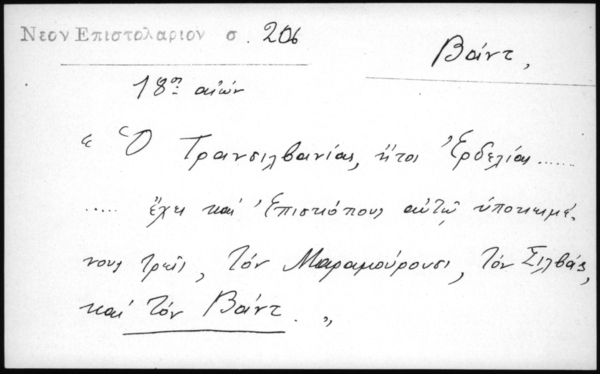 Νεον Επιστολαριον σ. 206
Βάντ,
18ος αἰών
« Ὁ Τρανσιλβανίας, ἤτοι Ἐρδελίας ......
..... ἔχει καὶ Ἐπισκόπους αὐτῷ ὑποκειμέ-
νους τρεῖς, τόν Μαραμούρουσι, τόν Σιλβάς,
καὶ τόν Βάντ. »